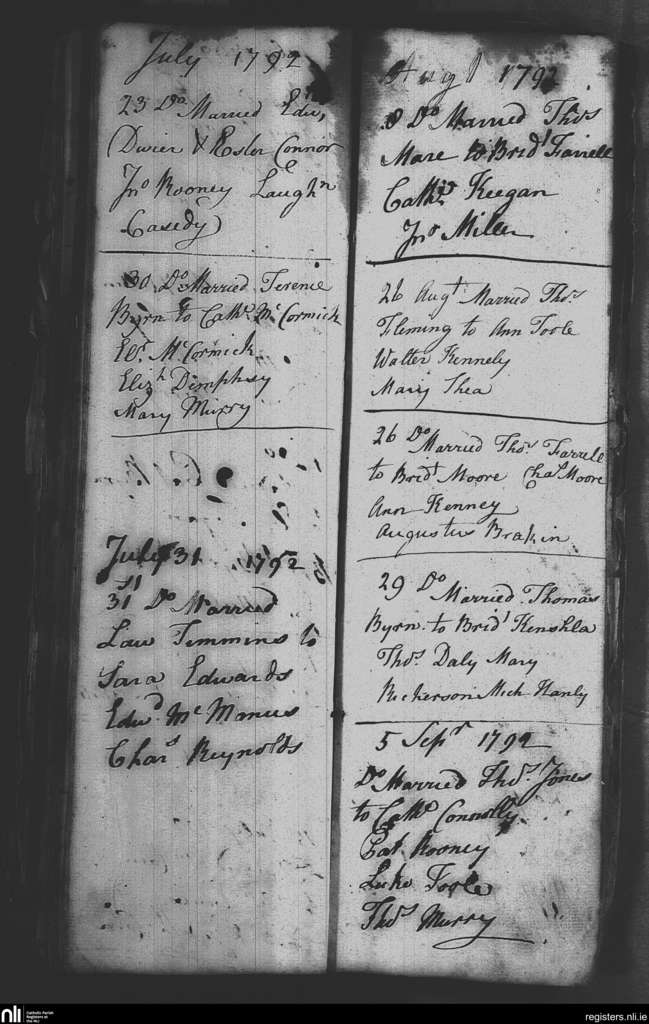 July 1792
23 Do Married Edwd
Dwier & Esler Connor
Jno Rooney Laughn
Casedy
30 Do Married Terence
Byrn to Cathe McCormick
McCormick
Elizh Dimphsy
Mary Murry
July 31 1792
31 Do Married
Law Timmins to
Sara Edwards
Edwd McManus
Chars Reynolds
Augt 1792
8 Do Married Thos
Mare to Bridt Farrell
Cathe Keegan
Jno Miller
26 Augt Married Thos
Fleming to Ann Toole
Walter Kennely
Mary Shea
26 Do Married Thos Farrell
to Bridt Moore Chas Moore
Ann Kenney
Augustus Brakin
29 Do Married Thomas
Byrn to Bridt Kenshla
Thos Daly Mary
Nickerson Mich Hanly
5 Sepr 1792
Do Married Thos Jones
to Cathe Connolly
Pat Rooney
Luke Toole
Thos Murry
nli Catholic Parish
Registers at
the NLI
registers.nli.ie